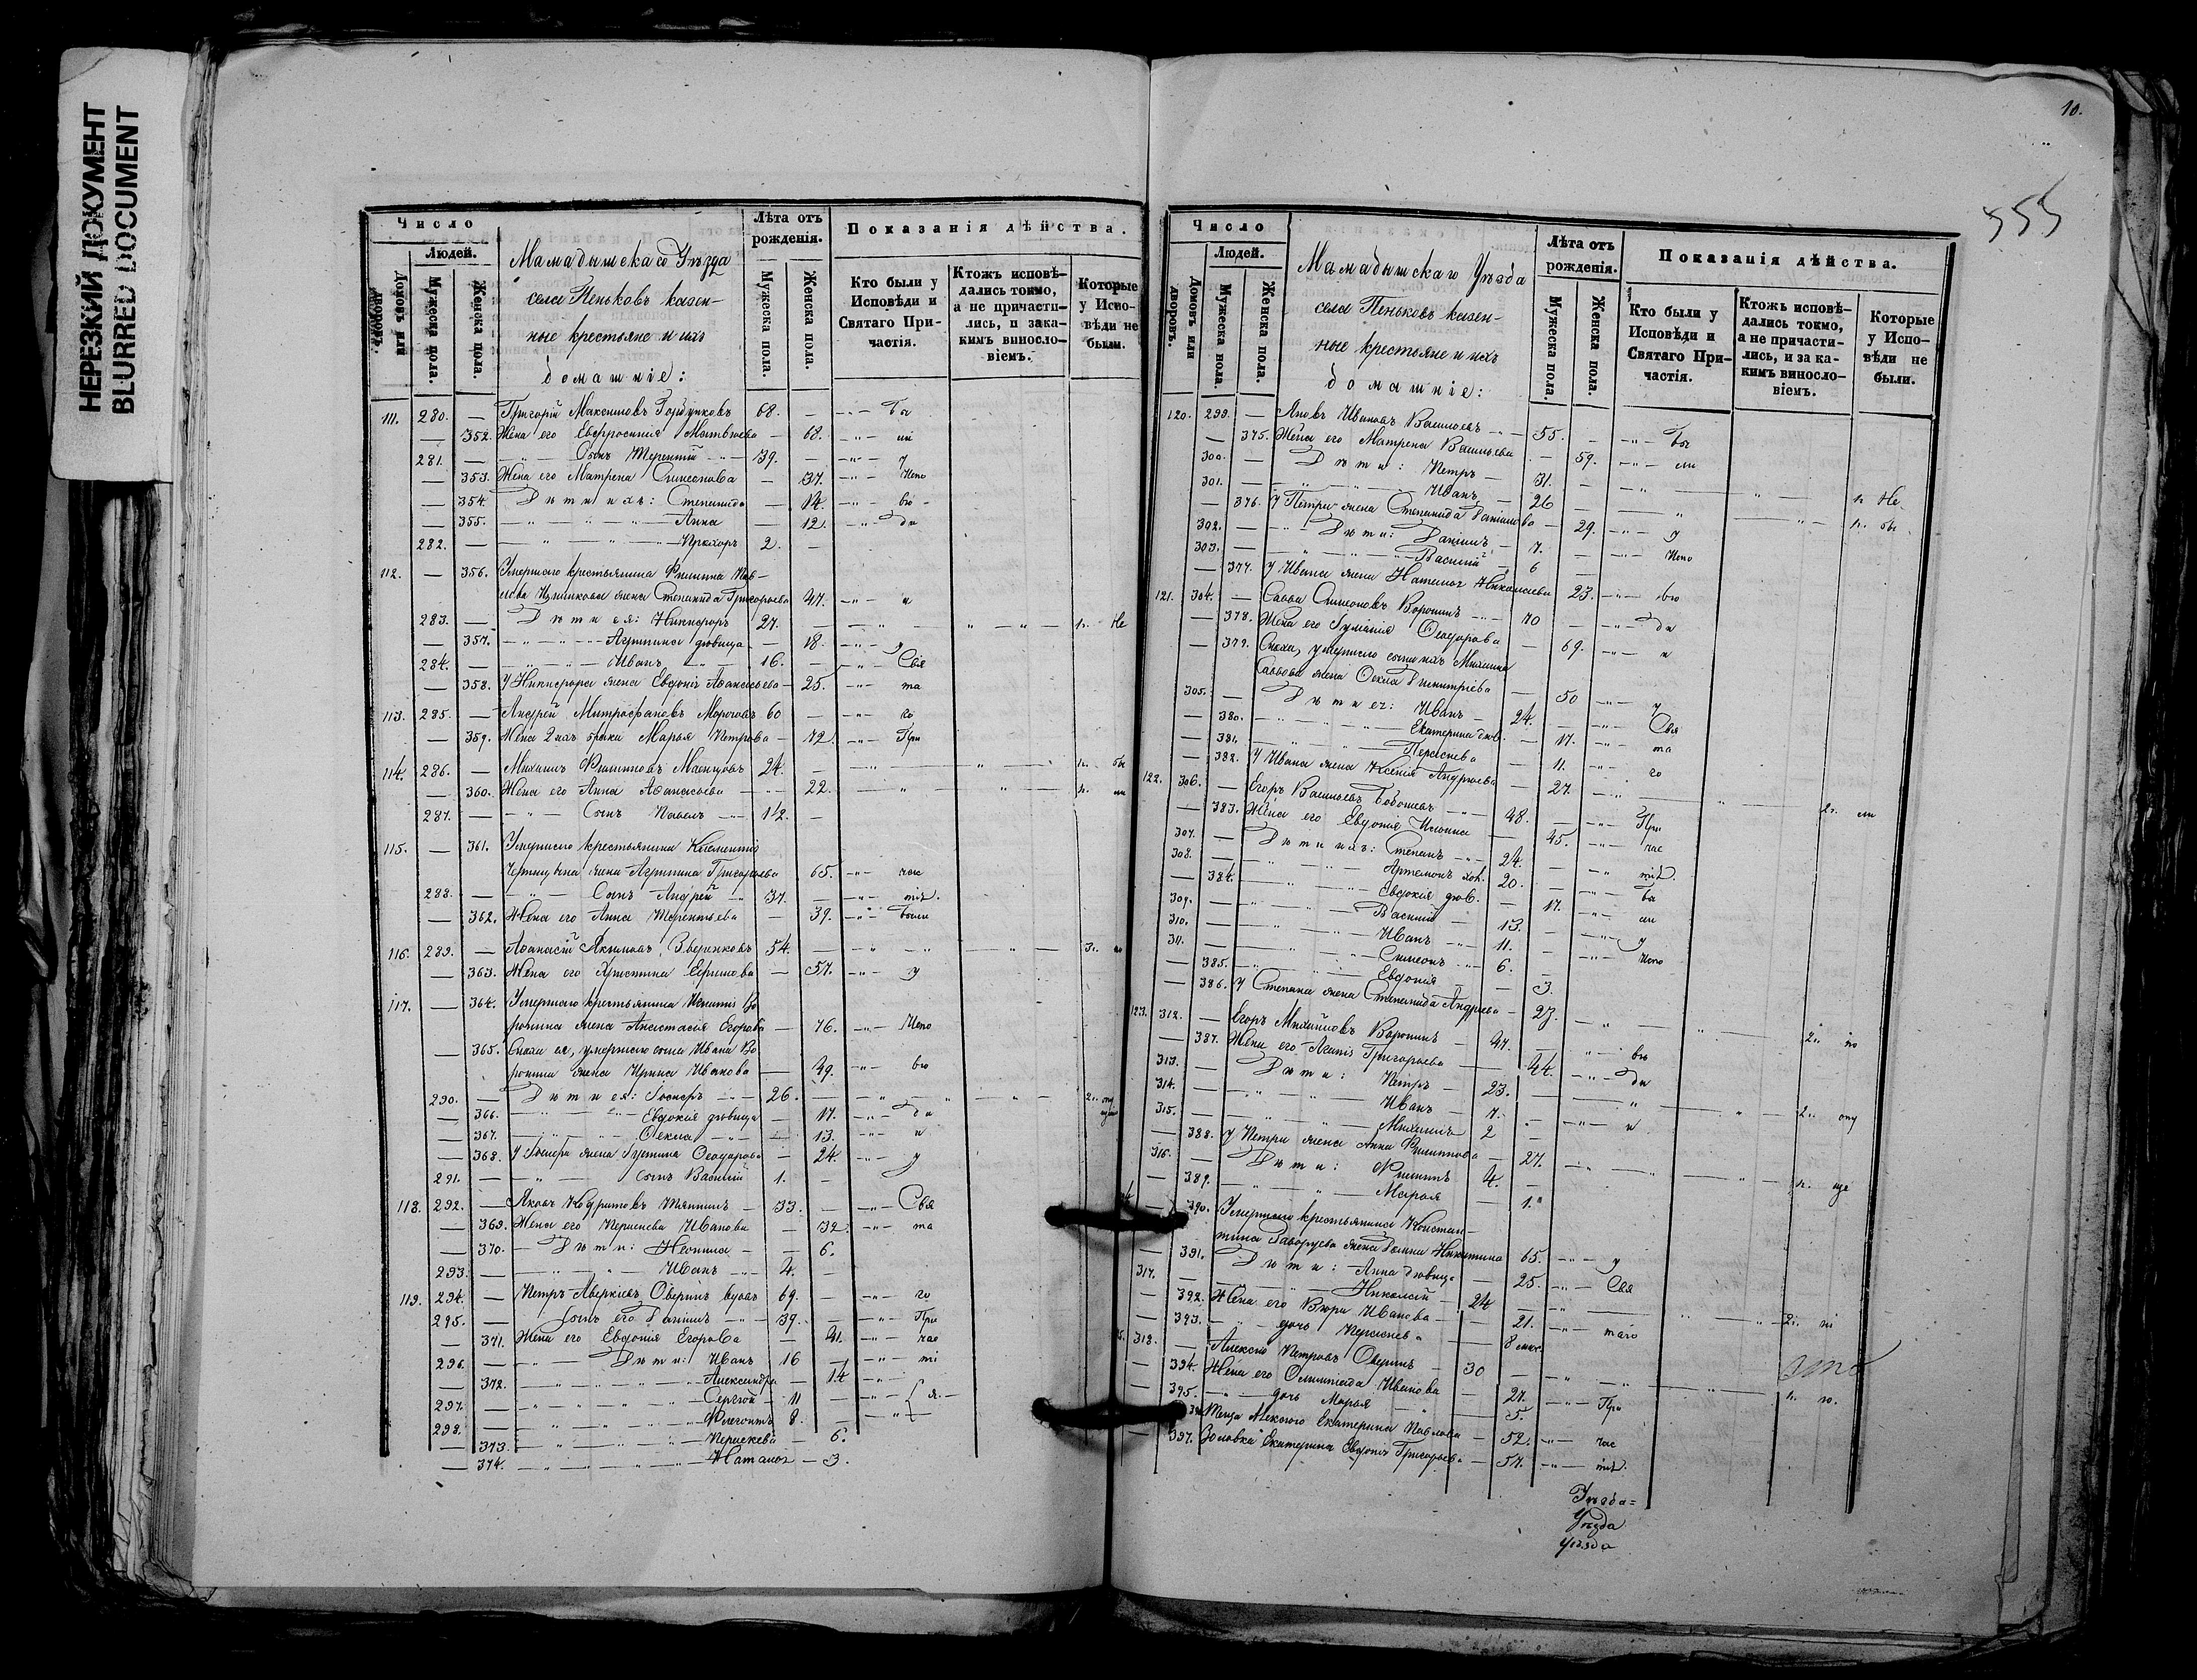 НЕРЕЗКИЙ ДОКУМЕНТ
BLURRED DOCUMENT
Число
Людей.
Домовъ или дворовъ.
Мужеска пола.
Женска пола.
Мамадышскаго Уѣзда
села Пеньковъ казен-
ные крестьяне и ихъ
домашніе:
Лѣта отъ рожденія.
Мужеска пола.
Женска пола.
Показанія дѣйства.
Кто были у Исповѣди и Святаго При-частія.
Ктожъ исповѣ-дались токмо, а не причасти-лись, и зака-кимъ винословіемъ.
Которые у Испо-вѣди не были.
111. 280. — Григорій Максимовъ 68. — бы
— 352. Жена его Евфросинія Матвѣева — 68. ли
281. — Сынъ Терентій 39. — у
— 353. Жена его Матрена Симеонова — 37. Испо
— 354. Дѣти ихъ: Степанида — 14. вѣ
— 355. Анна — 12. ди
282. — Прохоръ 2. —
112. — 356. Умершаго крестьянина Филиппа
жена Степанида Григорьева 47. и
283. — Дѣти ея: Никифоръ 27. — Не
— 357. Агрипина дѣвица — 18. у
284. — Иванъ 16. — Свя
— 358. У Никифора жена Евдокія Аѳанасьева — 25. та
113. 285. — Андрей Митрофановъ 60 — го
— 359. Жена 2мъ бракомъ Марья Петрова — 72. При
114. 286. — Михаилъ Филипповъ 24. — бы
— 360. Жена его Анна Аѳанасьева — 22. ли
287. — Сынъ Павелъ 1/2. —
115. — 361. Умершаго крестьянина
жена Агрипина Григорьева 65. час
288. — Сынъ Андрей 37. — тіѣ.
— 362. Жена его Анна Терентьева — 39. были
116. 289. — Аѳанасій Акимовъ Звѣринковъ 54. — 3.
— 363. Жена его Христина Ефимова — 57. у
117. — 364. Умершаго крестьянина Игнатія Во
ронина жена Анастасія Егорова — 76. Испо
— 365. Сноха ея, умершаго сына Ивана Во
ронина жена Ирина Иванова — 49. вѣ
290. — Дѣти ея: Іосифъ 26. — 2.
— 366. Евдокія дѣвица — 17. ди
— 367. Ѳекла — 13. и
— 368. У Іосифа жена Іустина Ѳеодорова — 24. у
291. — сынъ Василій 1. —
118. 292. — Яковъ 33. — Свя
— 369. Жена его Параскева Иванова — 32. та
— 370. Дѣти: Неонила — 6.
293. — Иванъ 4. —
119. 294. — Петръ Аверкіевъ Оверинъ вдовъ 69. — го
295. — Сынъ его Даніилъ 39. — При
— 371. Жена его Евдокія Егорова — 41. час
296. — Дѣти: Иванъ 16 — ті
— 372. Александра — 14
297. — Сергѣй 11 — я.
298. — Флегонтъ 8. —
— 373. Параскева — 6.
— 374. Наталья — 3.
10.
555
Число
Людей.
Домовъ или дворовъ.
Мужеска пола.
Женска пола.
Мамадышскаго Уѣзда
села Пеньковъ казен-
ные крестьяне и ихъ
домашніе:
Лѣта отъ рожденія.
Мужеска пола.
Женска пола.
Показанія дѣйства.
Кто были у Исповѣди и Святаго При-частія.
Ктожъ исповѣ-дались токмо, а не причасти-лись, и за ка-кимъ винословіемъ.
Которые у Испо-вѣди не были.
120. 299. — Яковъ Ивановъ 55. — бы
— 375. Жена его Матрена Васильева — 59. ли
300. — Дѣти: Петръ 31. — Не
301. — Иванъ 26 — бы
— 376. У Петра жена Степанида — 29. у
302. — Дѣти: Даніилъ 7. — Испо
303. — Василій 6 —
— 377. У Ивана жена Наталья Николаева 23. вѣ
121. 304. — Савва Симеоновъ Воронинъ 70 — ди
— 378. Жена его Іуліанія Ѳеодорова — 69. и
— 379. Сноха, умершаго сына ихъ Михаила
Саввова жена Ѳекла Димитріева — 50 у
305. — Дѣти ея: Иванъ 24. — Свя
— 380. Екатерина дѣв. — 17. та
— 381. Параскева — 11. го
— 382. У Ивана жена Ксенія Андреева — 27. 2. ли
122. 306. — Егоръ Васильевъ 48. — При
— 383. Жена его Евдокія Ильина — 45. час
307. — Дѣти ихъ: Степанъ 24. — тіѣ.
308. — Артемонъ хол. 20. — бы
— 384. Евдокія дѣв. — 17. ли
309. — Василій 13. — у
310. — Иванъ 11. — Испо
311. — Симеонъ 6. —
— 385. Евдокія — 3.
— 386. У Степана жена Степанида Андреева — 27. 2. по
123. 312. — Егоръ Михайловъ Воронинъ 47. — вѣ
— 387. Жена его Агапія Григорьева — 44. ди
313. — Дѣти: Петръ 23. — 2. опу
314. — Иванъ 7. — и
315. — Михаилъ 2 —
— 388. У Петра жена Анна Филиппова — 27. ще
316. — Дѣти: Филиппъ 4. —
— 389. Марья — 1.
— 390. Умершаго крестьянина Констан-
тина жена Никитина 65. у
— 391. Дѣти: Анна дѣвица — 25. Свя
317. — Николай 24 — 2. ні
— 392. Жена его Вѣра Иванова — 21. таго
— 393. дочь Параскева — 8 мѣс.
318. — Алексѣй Петровъ Оверинъ 30 —
— 394. Жена его Олимпіада Иванова — 27. При
— 395. дочь Марья — 5.
— 396. Теща Алексѣя Екатерина Павлова — 52. час
— 397. Золовка Екатерины Евдокія Григорьева — 57. тіѣ.
Уѣзда=
Уѣзда
Уѣзда